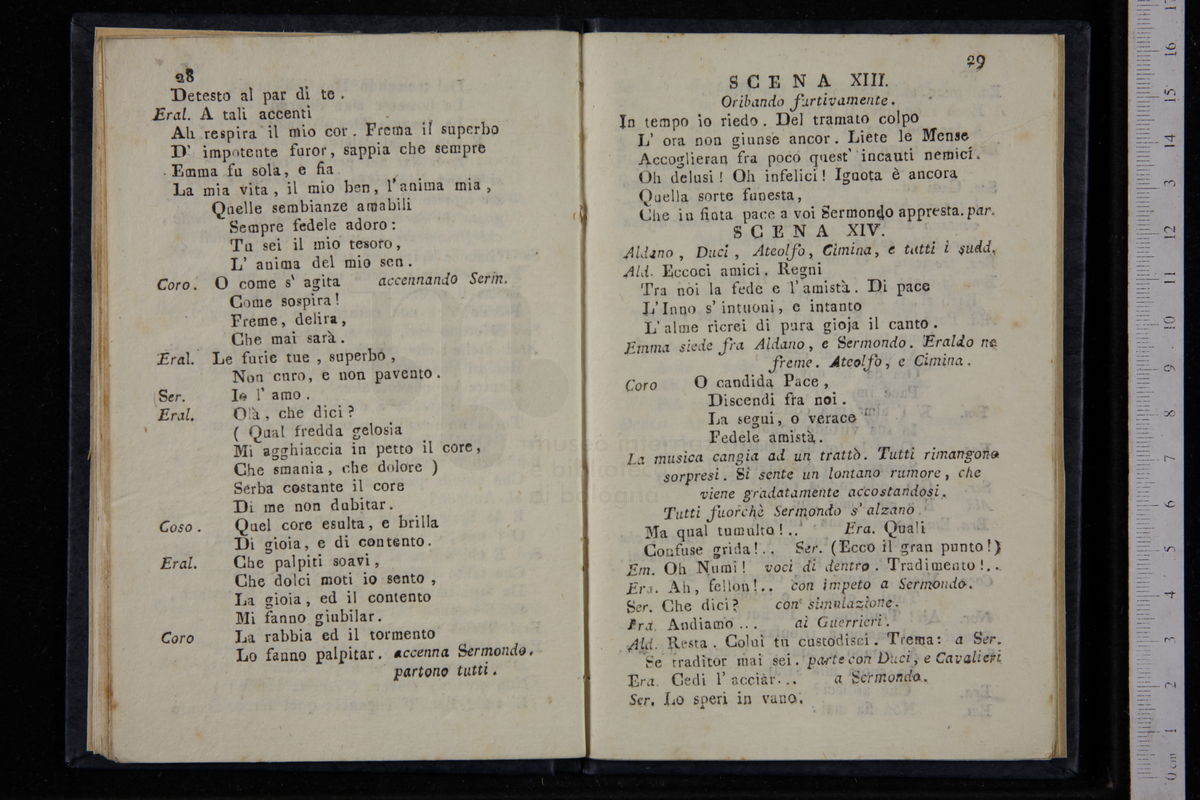 28
Detesto al par di te .
Eral. A tali accenti
Ah respira il mio cor . Frema il superbo
D' impotente furor, sappia che sempre
Emma fu sola, e fia
La mia vita , il mio ben, l'anima mia ,
Quelle sembianze amabili
Sempre fedele adoro :
Tu sei il mio tesoro ,
L' anima del mio sen .
Coro . O come s' agita accennando Serm.
Come sospira !
Freme , delira ,
Che mai sarà .
Eral. Le furie tue , superbo ,
Non curo, e non pavento .
Ser. Io l' amo .
Eral. Olà , che dici ?
( Qual fredda gelosia
Mi agghiaccia in petto il core,
Che smania , che dolore )
Serba costante il core
Di me non dubitar.
Coso . Quel core esulta , e brilla
Di gioia, e di contento.
Eral. Che palpiti soavi ,
Che dolci moti io sento ,
La gioia , ed il contento
Mi fanno giubilar.
Coro La rabbia ed il tormento
Lo fanno palpitar. accenna Sermondo.
partono tutti .
29
SCENA XIII.
Oribando furtivamente .
In tempo io riedo . Del tramato colpo
L' ora non giunse ancor . Liete le Mense
Accoglieran fra poco quest' incauti nemici.
Oh delusi ! Oh infelici ! Ignota è ancora
Quella sorte funesta ,
Che in finta pace a voi Sermondo appresta. par.
SCENA XIV.
Aldano , Duci , Ateolfo , Cimina, e tutti i sudd.
Ald. Eccoci amici . Regni
Tra noi la fede e l' amistà . Di pace
L' Inno s' intuoni , e intanto
L' alme ricrei di pura gioja il canto .
Emma siede fra Aldano , e Sermondo . Eraldo ne
freme. Ateolfo , e Cimina .
Coro O candida Pace ,
Discendi fra noi .
La segui, o verace
Fedele amistà .
La musica cangia ad un tratto. Tutti rimangono
sorpresi . Si sente un lontano rumore , che
viene gradatamente accostandosi .
Tutti fuorchè Sermondo s' alzano .
Ma qual tumulto ! .. Era. Quali
Confuse grida ! .. Ser. (Ecco il gran punto !)
Em. Oh Numi ! voci di dentro . Tradimento ! ..
Era. Ah, fellon ! .. con impeto a Sermondo.
Ser. Che dici ? con simulazione.
Era. Andiamo ... ai Guerrieri .
Ald. Resta . Colui tu custodisci . Trema : a Ser.
Se traditor mai sei . parte con Duci, e Cavalieri
Era. Cedi l' acciar ... a Sermondo.
Ser. Lo speri in vano.